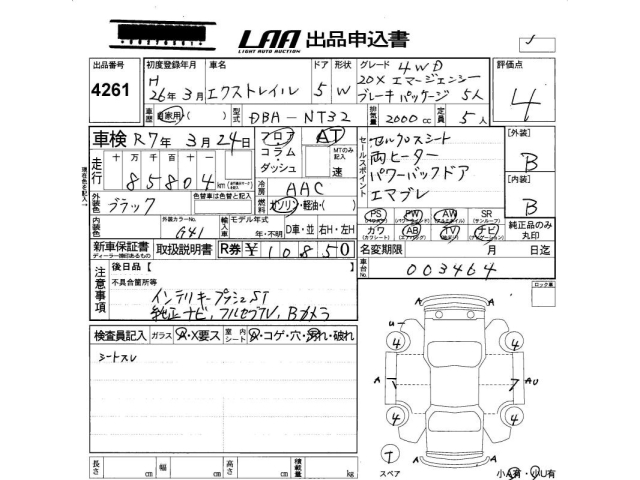 LAA 出品申込書
LIGHT AUTO AUCTION
出品番号 初度登録年月 車名 ドア 形状 グレード 4WD 評価点
4261 H 26年3月 エクストレイル 5 W 20X エマージェンシー
ブレーキパッケージ 5人 4
車歴 自家用・( ) 型式 DBA-NT32 排気量 2000cc 定員 5人
車検 R7年 3月 24日 フロア AT セールスポイント [外装]
コラム・ MTのみ記入 セルクロスシート B
走行 十万千百十一 ダッシュ 速 両ヒーター
85804 km 冷房 AAC パワーバックドア [内装]
外装色 ブラック 色替車は色替と記入 燃料 ガソリン・軽油・( ) エマブレ B
内装色 外装カラーNo. G41 輸入車 モデル年式 年・不明 D車・並 右H・左H
PS PW AW SR
カワ AB TV ナビ 純正品のみ丸印
新車保証書 取扱説明書 R券 ¥10850 名変期限 月 日迄
ディーラー捺印あるもの
現在色を記入
注意事項 後日品【 】 車台No. 003464
不具合箇所等
インテリキー プッシュST
純正ナビ、フルセグTV、Bカメラ
ロック車
検査員記入 ガラス A・X要ス 室内シート A・コゲ・穴・汚れ・破れ
シートスレ
U
4 4
A A AU
4 4
A A
T
スペア
長さ cm 幅 cm 高さ cm 積載量 kg
小A有・小U有